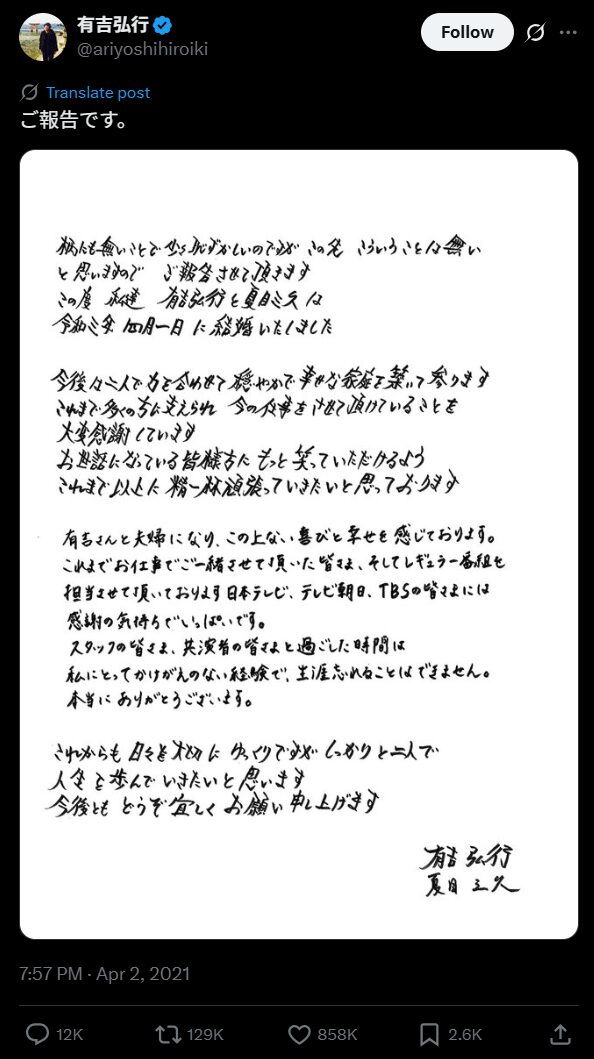 有吉弘行
@ariyoshihiroiki
Follow
Translate post
ご報告です。
柄にも無いことで少々恥ずかしいのですが この先 こういうことは無い
と思いますので ご報告させて頂きます
この度 私達 有吉弘行と夏目三久は
令和三年 四月一日 に結婚いたしました
今後は二人で力を合わせて 穏やかで幸せな家庭を築いて参ります
これまで多くの方に支えられ 今の仕事をさせて頂けていることを
大変感謝しています
お世話になっている皆様方に もっと笑っていただけるよう
これまで以上に 精一杯頑張っていきたいと思っております
有吉さんと夫婦になり、この上ない喜びと幸せを感じております。
これまでお仕事でご一緒させて頂いた皆さま、そしてレギュラー番組を
担当させて頂いております日本テレビ、テレビ朝日、TBSの皆さまには
感謝の気持ちでいっぱいです。
スタッフの皆さま、共演者の皆さまと過ごした時間は
私にとってかけがえのない経験で、生涯忘れることはできません。
本当にありがとうございます。
これからも 日々を大切に ゆっくりですが しっかりと二人で
人生を歩んでいきたいと思います
今後とも どうぞ宜しく お願い申し上げます
有吉弘行
夏目三久
7:57 PM · Apr 2, 2021
12K 129K 858K 2.6K